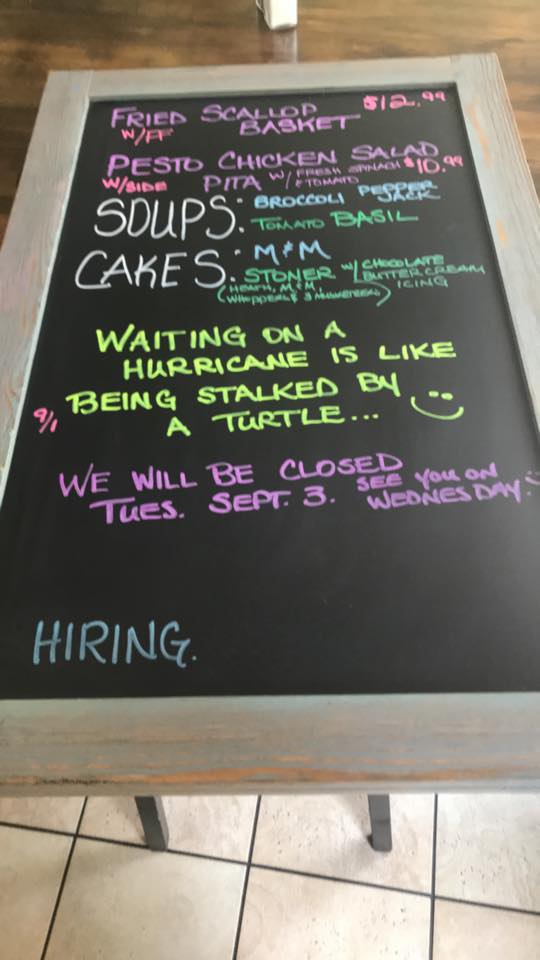 FRIED SCALLOP $12.99
W/FF BASKET
PESTO CHICKEN SALAD
W/SIDE PITA W/ FRESH SPINACH $10.99
& TOMATO
SOUPS: BROCCOLI PEPPER
JACK
TOMATO BASIL
CAKES: M&M
STONER W/ CHOCOLATE
BUTTERCREAM
ICING
(HEATH, M&M,
WHOPPERS & 3 MUSKETEERS)
WAITING ON A
HURRICANE IS LIKE
9/1 BEING STALKED BY
A TURTLE...
WE WILL BE CLOSED
TUES. SEPT. 3. SEE YOU ON
WEDNESDAY!
HIRING.